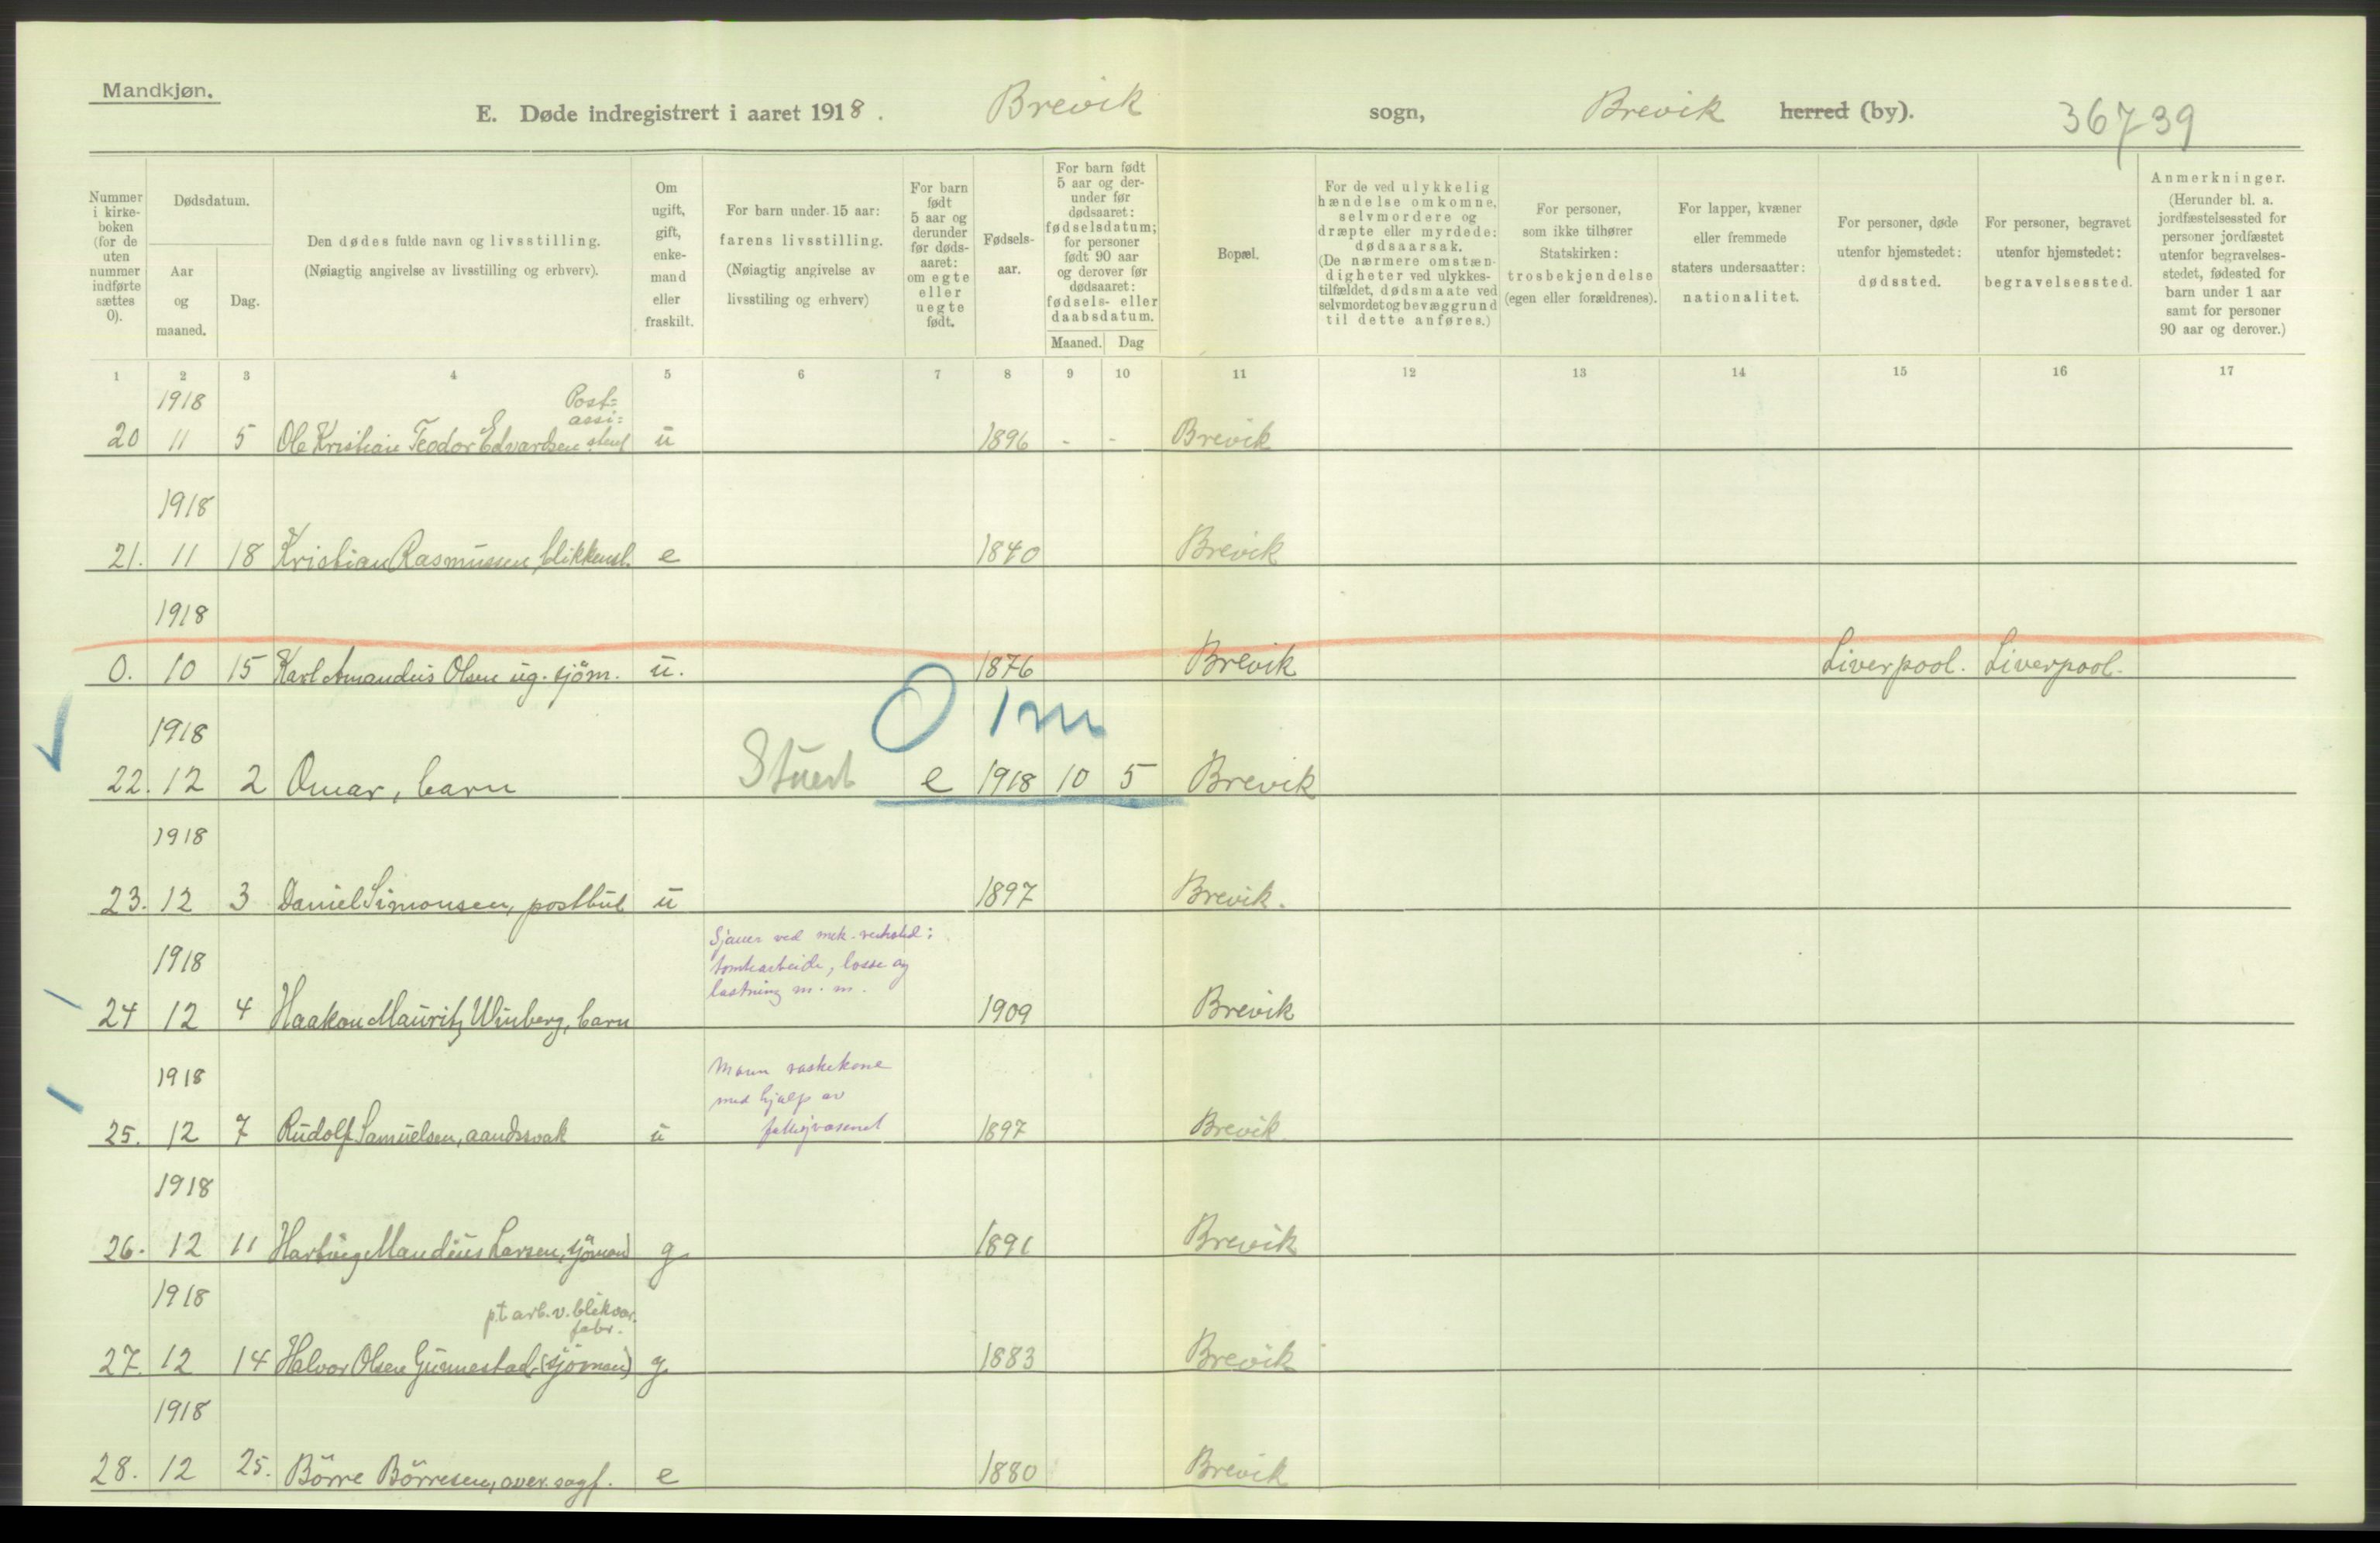 Mandkjøn.
E. Døde indregistrert i aaret 1918. Brevik sogn, Brevik herred (by). 36739
Nummer i kirke-boken (for de uten nummer indførte sættes 0).
Dødsdatum.
Aar og maaned.
Dag.
Den dødes fulde navn og livsstilling.
(Nøiagtig angivelse av livsstilling og erhverv).
Om ugift, gift, enke-mand eller fraskilt.
For barn under 15 aar:
farens livsstilling.
(Nøiagtig angivelse av
livsstiling og erhverv)
For barn født 5 aar og derunder før døds-aaret: om egte eller uegte født.
Fødsels-aar.
For barn født 5 aar og der-under før dødsaaret: fødselsdatum; for personer født 90 aar og derover før dødsaaret: fødsels- eller daabsdatum.
Maaned. Dag
Bopæl.
For de ved ulykkelig hændelse omkomne, selvmordere og dræpte eller myrdede: dødsaarsak.
(De nærmere omstæn-digheter ved ulykkes-tilfældet, dødsmaate ved selvmordet og bevæggrund til dette anføres.)
For personer, som ikke tilhører Statskirken: trosbekjendelse (egen eller forældrenes).
For lapper, kvæner eller fremmede staters undersaatter: nationalitet.
For personer, døde utenfor hjemstedet: dødssted.
For personer, begravet utenfor hjemstedet: begravelsessted.
Anmerkninger.
(Herunder bl. a. jordfæstelsessted for personer jordfæstet utenfor begravelses-stedet, fødested for barn under 1 aar samt for personer 90 aar og derover.)
1 2 3 4 5 6 7 8 9 10 11 12 13 14 15 16 17
1918 Post=
assi=
20 11 5 Ole Kristian Teodor Edvardsen stent u 1896 - - Brevik
1918
21. 11 18 Kristian Rasmussen, blikkensl. e 1840 Brevik
1918
0. 10 15 Karl Amandus Olsen ug. sjöm. u. 1876 Brevik Liverpool. Liverpool.
1918 0 1 m
22. 12 2 Omar, barn Stuert e 1918 10 5 Brevik
1918
23. 12 3 Daniel Simonsen, postbud u 1897 Brevik.
1918 Sjauer ved mek. verksted:
tomtearbeide, losse og
lastning m. m.
24 12 4 Haakon Mauritz Winberg, barn 1909 Brevik
1918 Moren vaskekone
med hjælp av
fattigvæsenet
25. 12 7 Rudolf Samuelsen, aandssvak u 1897 Brevik
1918
26. 12 11 Hartvig Mandius Larsen, sjömand g. 1891 Brevik
1918 p.t arb. v. blikvar.
fabr.
27. 12 14 Halvor Olsen Gunnestad (sjöman) g. 1883 Brevik
1918
28. 12 25. Börre Börresen, overr. sagf. e 1880 Brevik